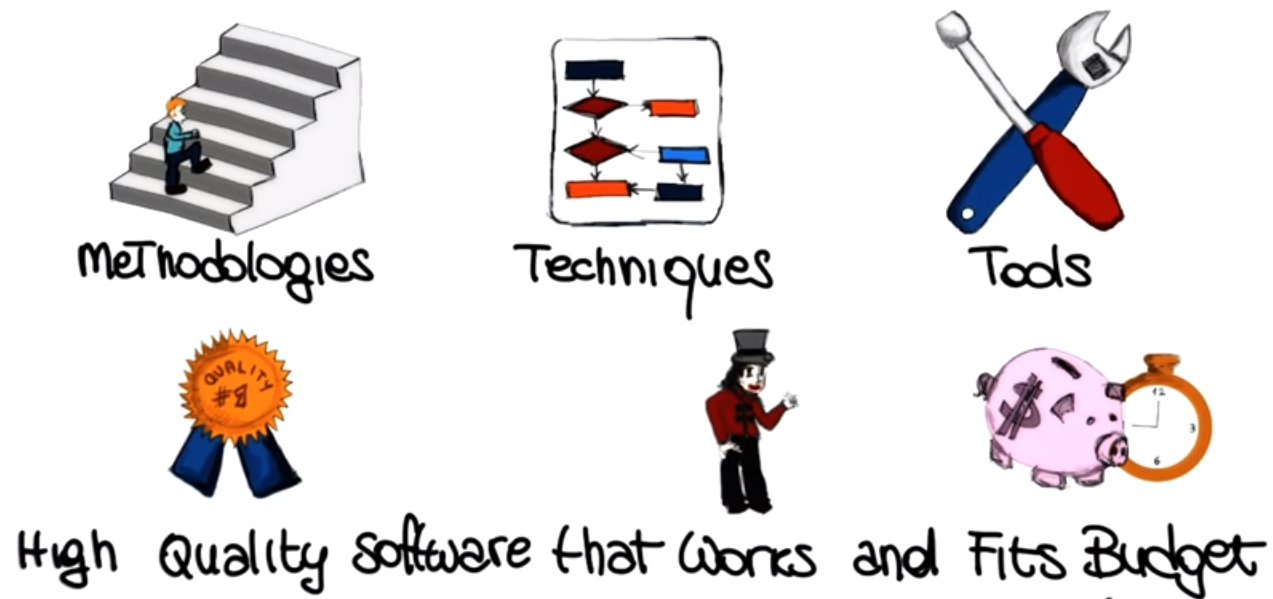 Methodologies Techniques Tools
QUALITY
#1
$
12
3
6
High Quality software that works and Fits Budget